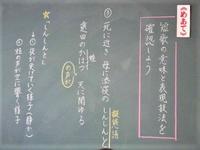 (めあて)
短歌の意味と表現技法を
確認しよう
① 死に近き母に添寝のしんしんと
遠田のかはづ天に聞ゆる
蛙
の声が
擬態語
☆「しんしんと」
↓① 夜が更けていく様子(静か)
↓② 蛙の声が空に響く様子